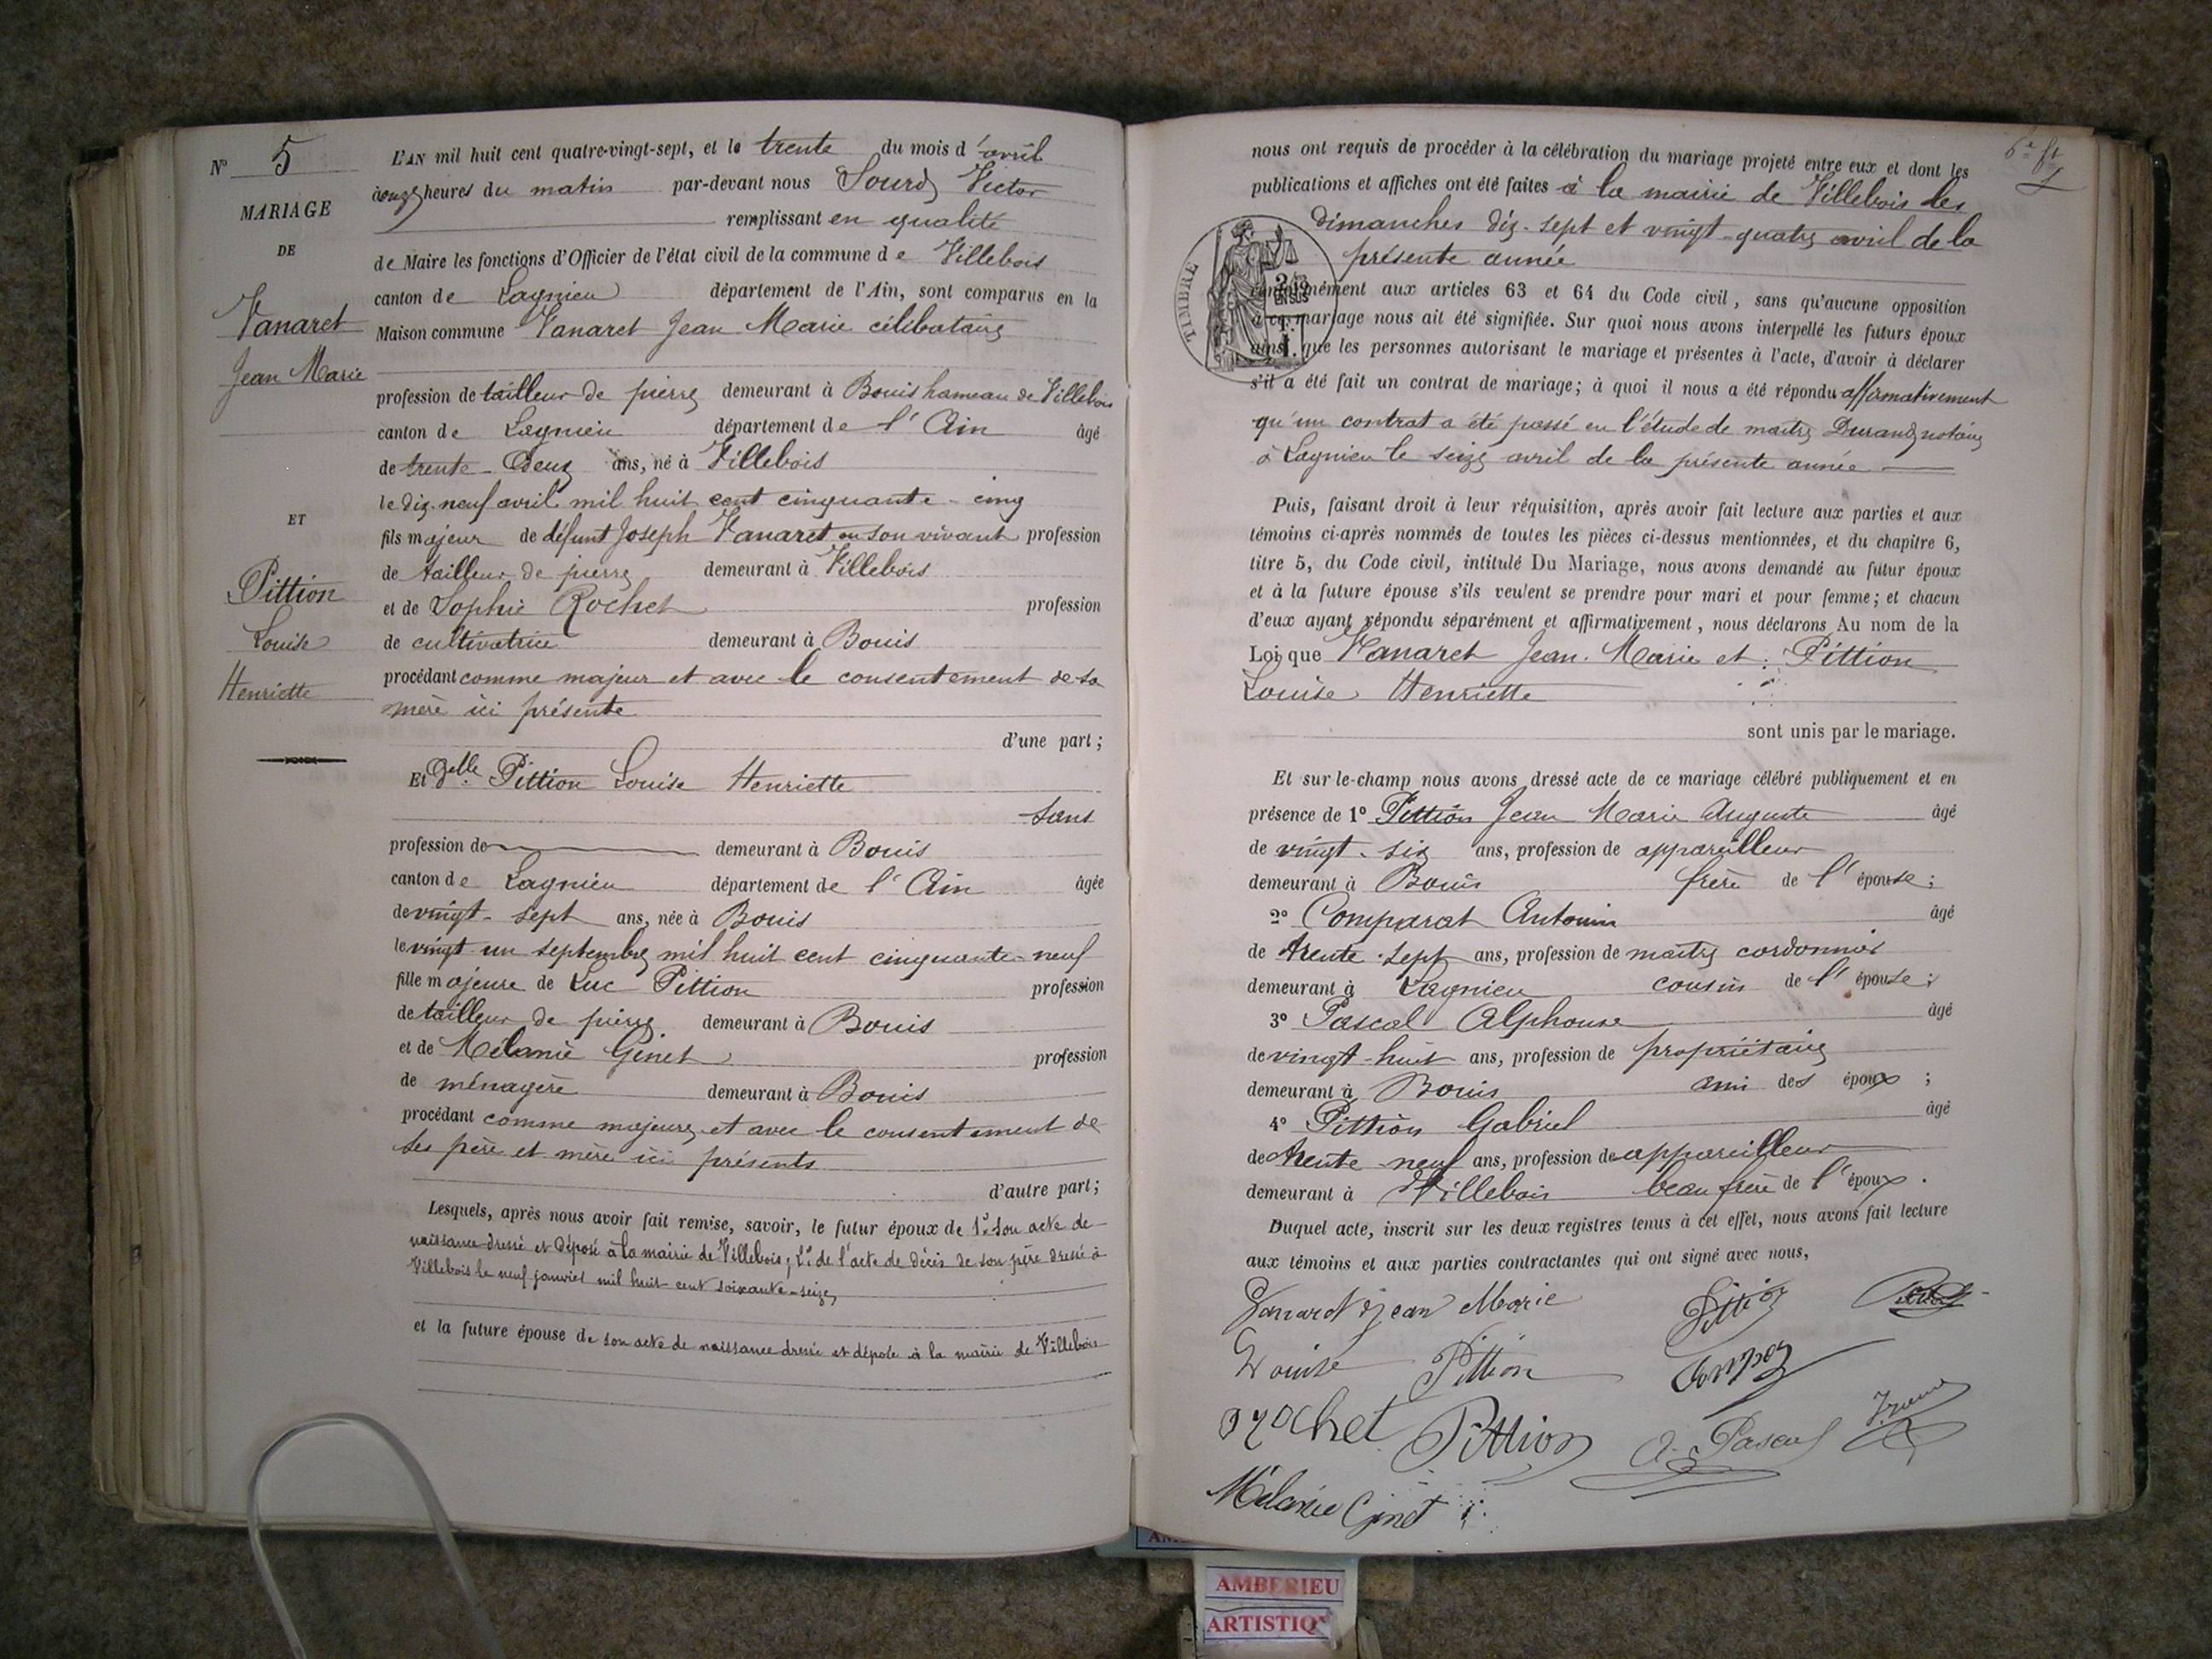 N° 5
MARIAGE
DE
Vanaret
Jean Marie
ET
Pittion
Louise
Henriette
L'AN mil huit cent quatre-vingt-sept, et le trente du mois d'avril
à onze heures du matin par-devant nous Sourd Victor
remplissant en qualité
de Maire les fonctions d'Officier de l'état civil de la commune de Villebois
canton de Lagnieu département de l'Ain, sont comparus en la
Maison commune Vanaret Jean Marie célibataire
profession de tailleur de pierre demeurant à Bouis hameau de Villebois
canton de Lagnieu département de l'Ain âgé
de trente-deux ans, né à Villebois
le dix-neuf avril mil huit cent cinquante-cinq
fils majeur de défunt Joseph Vanaret en son vivant profession
de tailleur de pierre demeurant à Villebois
et de Sophie Rochet profession
de cultivatrice demeurant à Bouis
procédant comme majeur et avec le consentement de sa
mère ici présente
d'une part;
Et Delle Pittion Louise Henriette
sans
profession de demeurant à Bouis
canton de Lagnieu département de l'Ain âgée
de vingt-sept ans, née à Bouis
le vingt-un septembre mil huit cent cinquante-neuf
fille majeure de Luc Pittion profession
de tailleur de pierre demeurant à Bouis
et de Mélanie Ginet profession
de ménagère demeurant à Bouis
procédant comme majeure et avec le consentement de
ses père et mère ici présents
d'autre part;
Lesquels, après nous avoir fait remise, savoir, le futur époux de 1° son acte de
naissance dressé et déposé à la mairie de Villebois; 2° de l'acte de décès de son père dressé à
Villebois le neuf janvier mil huit cent soixante-seize,
et la future épouse de son acte de naissance dressé et déposé à la mairie de Villebois
nous ont requis de procéder à la célébration du mariage projeté entre eux et dont les
publications et affiches ont été faites à la mairie de Villebois les
dimanches dix-sept et vingt-quatre avril de la
présente année
TIMBRE
2/10
EN SUS
conformément aux articles 63 et 64 du Code civil, sans qu'aucune opposition
à ce mariage nous ait été signifiée. Sur quoi nous avons interpellé les futurs époux
ainsi que les personnes autorisant le mariage et présentes à l'acte, d'avoir à déclarer
s'il a été fait un contrat de mariage; à quoi il nous a été répondu affirmativement
qu'un contrat a été passé en l'étude de maître Durand notaire
à Lagnieu le seize avril de la présente année
Puis, faisant droit à leur réquisition, après avoir fait lecture aux parties et aux
témoins ci-après nommés de toutes les pièces ci-dessus mentionnées, et du chapitre 6,
titre 5, du Code civil, intitulé Du Mariage, nous avons demandé au futur époux
et à la future épouse s'ils veulent se prendre pour mari et pour femme; et chacun
d'eux ayant répondu séparément et affirmativement, nous déclarons Au nom de la
Loi que Vanaret Jean-Marie et Pittion
Louise Henriette
sont unis par le mariage.
Et sur-le-champ nous avons dressé acte de ce mariage célébré publiquement et en
présence de 1° Pittion Jean Marie Auguste âgé
de vingt-six ans, profession de appareilleur
demeurant à Bouis frère de l'épouse;
2° Comparat Antonin âgé
de trente-sept ans, profession de maître cordonnier
demeurant à Lagnieu cousin de l'épouse;
3° Pascal Alphonse âgé
de vingt-huit ans, profession de propriétaire
demeurant à Bouis ami des époux;
4° Pittion Gabriel âgé
de trente-neuf ans, profession de appareilleur
demeurant à Villebois beau frère de l'époux.
Duquel acte, inscrit sur les deux registres tenus à cet effet, nous avons fait lecture
aux témoins et aux parties contractantes qui ont signé avec nous,
Vanaret jean Marie Pittion
Louise Pittion
Rochet Pittion A. Pascal
Mélanie Ginet
AMBERIEU
ARTISTIQ